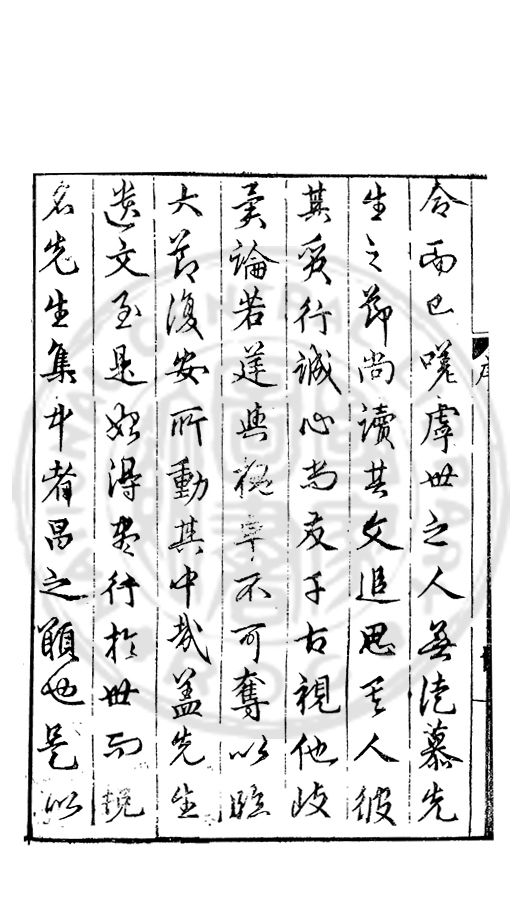 序
而已嗟虖世之人無徒慕先
生之節尚讀其文追思其人彼
其質行誠心尚友于古視他歧
異論若莛與楹牢不可奪以臨
大節復安所動其中哉蓋先生
遺文至是始得盡行於世而
名先生集中者昌之願也是以